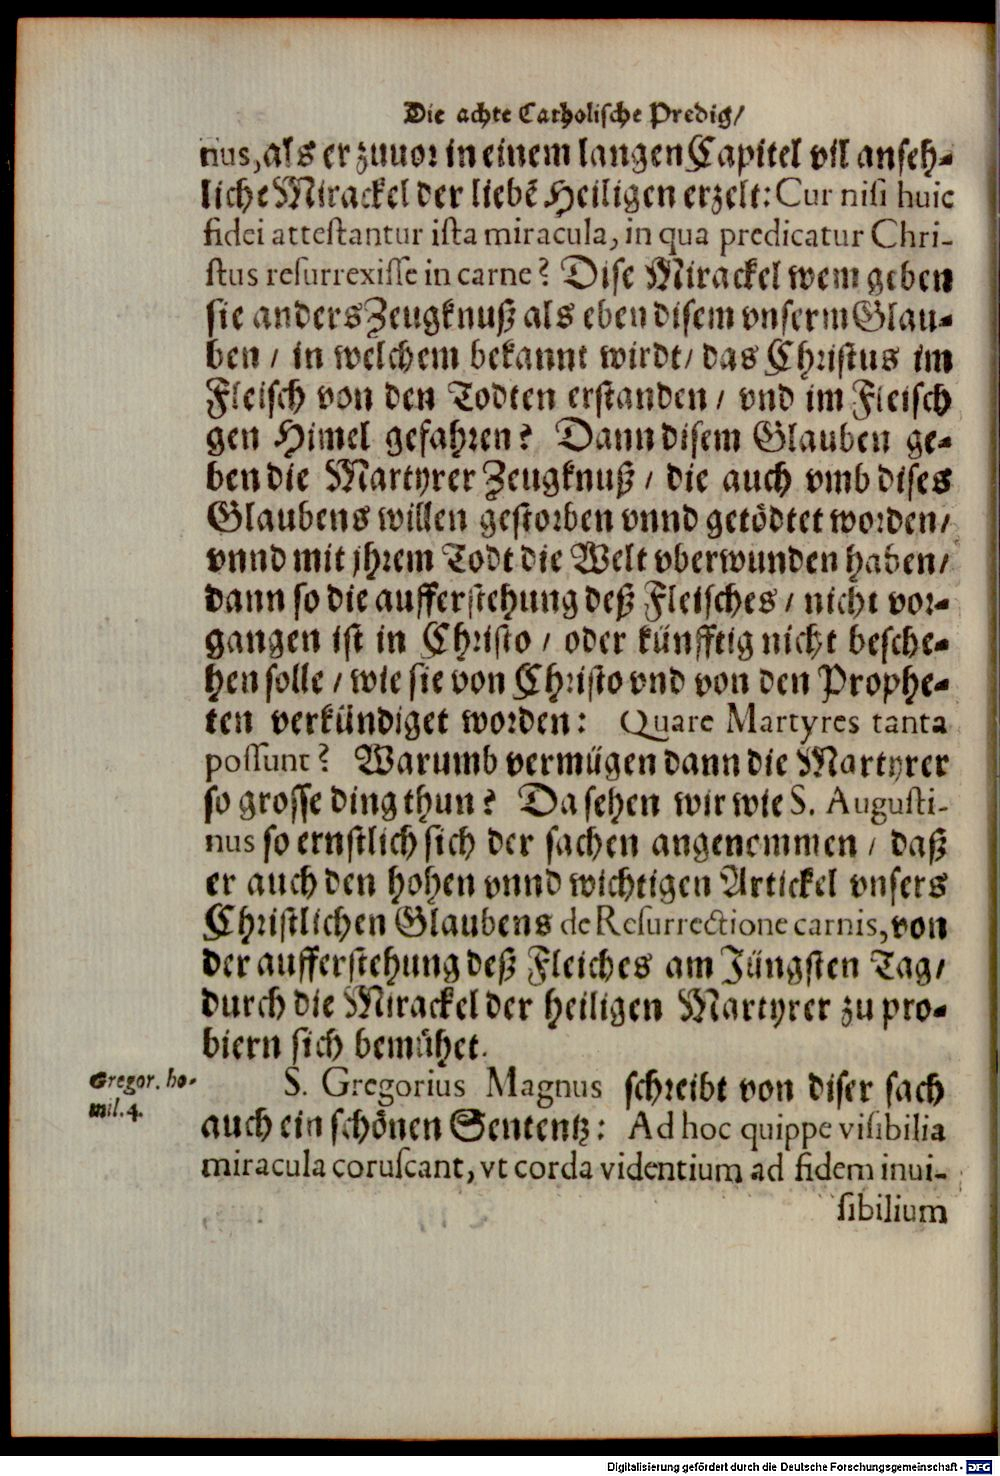 Die achte Catholische Predig/
nus, als er zuuor in einem langen Capitel vil anseh-
liche Mirackel der liebē Heiligen erzelt: Cur nisi huic
fidei attestantur ista miracula, in qua predicatur Chri-
stus resurrexisse in carne? Dise Mirackel wem geben
sie anders Zeugknuß als eben disem vnserm Glau-
ben / in welchem bekannt wirdt / das Christus im
Fleisch von den Todten erstanden / vnd im Fleisch
gen Himel gefahren? Dann disem Glauben ge-
ben die Martyrer Zeugknuß / die auch vmb dises
Glaubens willen gestorben vnnd getödtet worden /
vnnd mit jhrem Todt die Welt vberwunden haben /
dann so die aufferstehung deß Fleisches / nicht vor-
gangen ist in Christo / oder künfftig nicht besche-
hen solle / wie sie von Christo vnd von den Prophe-
ten verkündiget worden: Quare Martyres tanta
possunt? Warumb vermügen dann die Martyrer
so grosse ding thun? Da sehen wir wie S. Augusti-
nus so ernstlich sich der sachen angenommen / daß
er auch den hohen vnnd wichtigen Artickel vnsers
Christlichen Glaubens de Resurrectione carnis, von
der aufferstehung deß Fleiches am Jüngsten Tag /
durch die Mirackel der heiligen Martyrer zu pro-
biern sich bemühet.
Gregor. ho-
mil. 4.
S. Gregorius Magnus schreibt von diser sach
auch ein schönen Sententz: Ad hoc quippe visibilia
miracula coruscant, vt corda videntium ad fidem inui-
sibilium
Digitalisierung gefördert durch die Deutsche Forschungsgemeinschaft - DFG